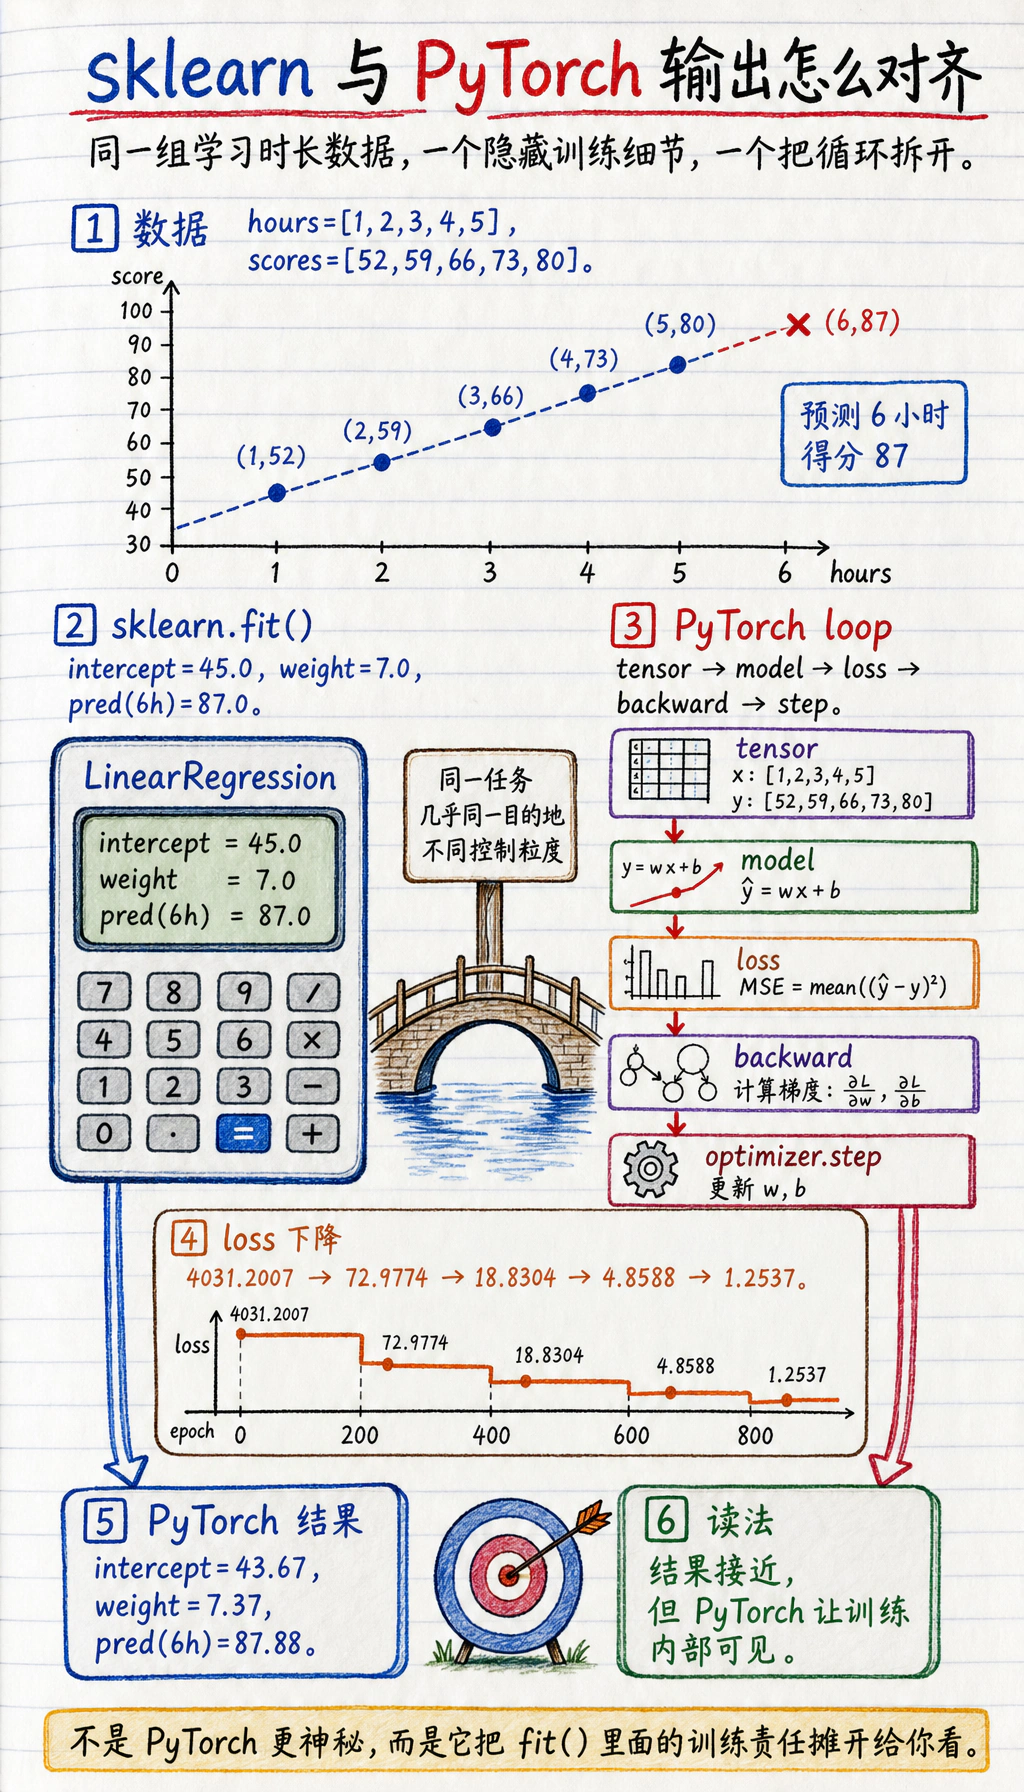 sklearn 与 PyTorch 输出怎么对齐
同一组学习时长数据，一个隐藏训练细节，一个把循环拆开。
1 数据
hours=[1,2,3,4,5]，
scores=[52,59,66,73,80]。
score
100
90
80
70
60
50
40
30
(1,52)
(2,59)
(3,66)
(4,73)
(5,80)
(6,87)
预测 6 小时
得分 87
0 1 2 3 4 5 6 hours
2 sklearn.fit()
intercept=45.0, weight=7.0,
pred(6h)=87.0。
LinearRegression
intercept = 45.0
weight = 7.0
pred(6h) = 87.0
7 8 9 /
4 5 6 ×
1 2 3 −
0 · = +
同一任务
几乎同一目的地
不同控制粒度
3 PyTorch loop
tensor → model → loss →
backward → step。
tensor
x: [1,2,3,4,5]
y: [52,59,66,73,80]
y=wx+b
model
ŷ = wx+b
loss
MSE = mean((ŷ-y)²)
backward
计算梯度: ∂L/∂w, ∂L/∂b
optimizer.step
更新 w, b
4 loss 下降
4031.2007 → 72.9774 → 18.8304 → 4.8588 → 1.2537。
loss
4031.2007
72.9774
18.8304
4.8588
1.2537
epoch 0 200 400 600 800
5 PyTorch 结果
intercept=43.67,
weight=7.37,
pred(6h)=87.88。
6 读法
结果接近，
但 PyTorch 让训练
内部可见。
不是 PyTorch 更神秘，而是它把 fit() 里面的训练责任摊开给你看。